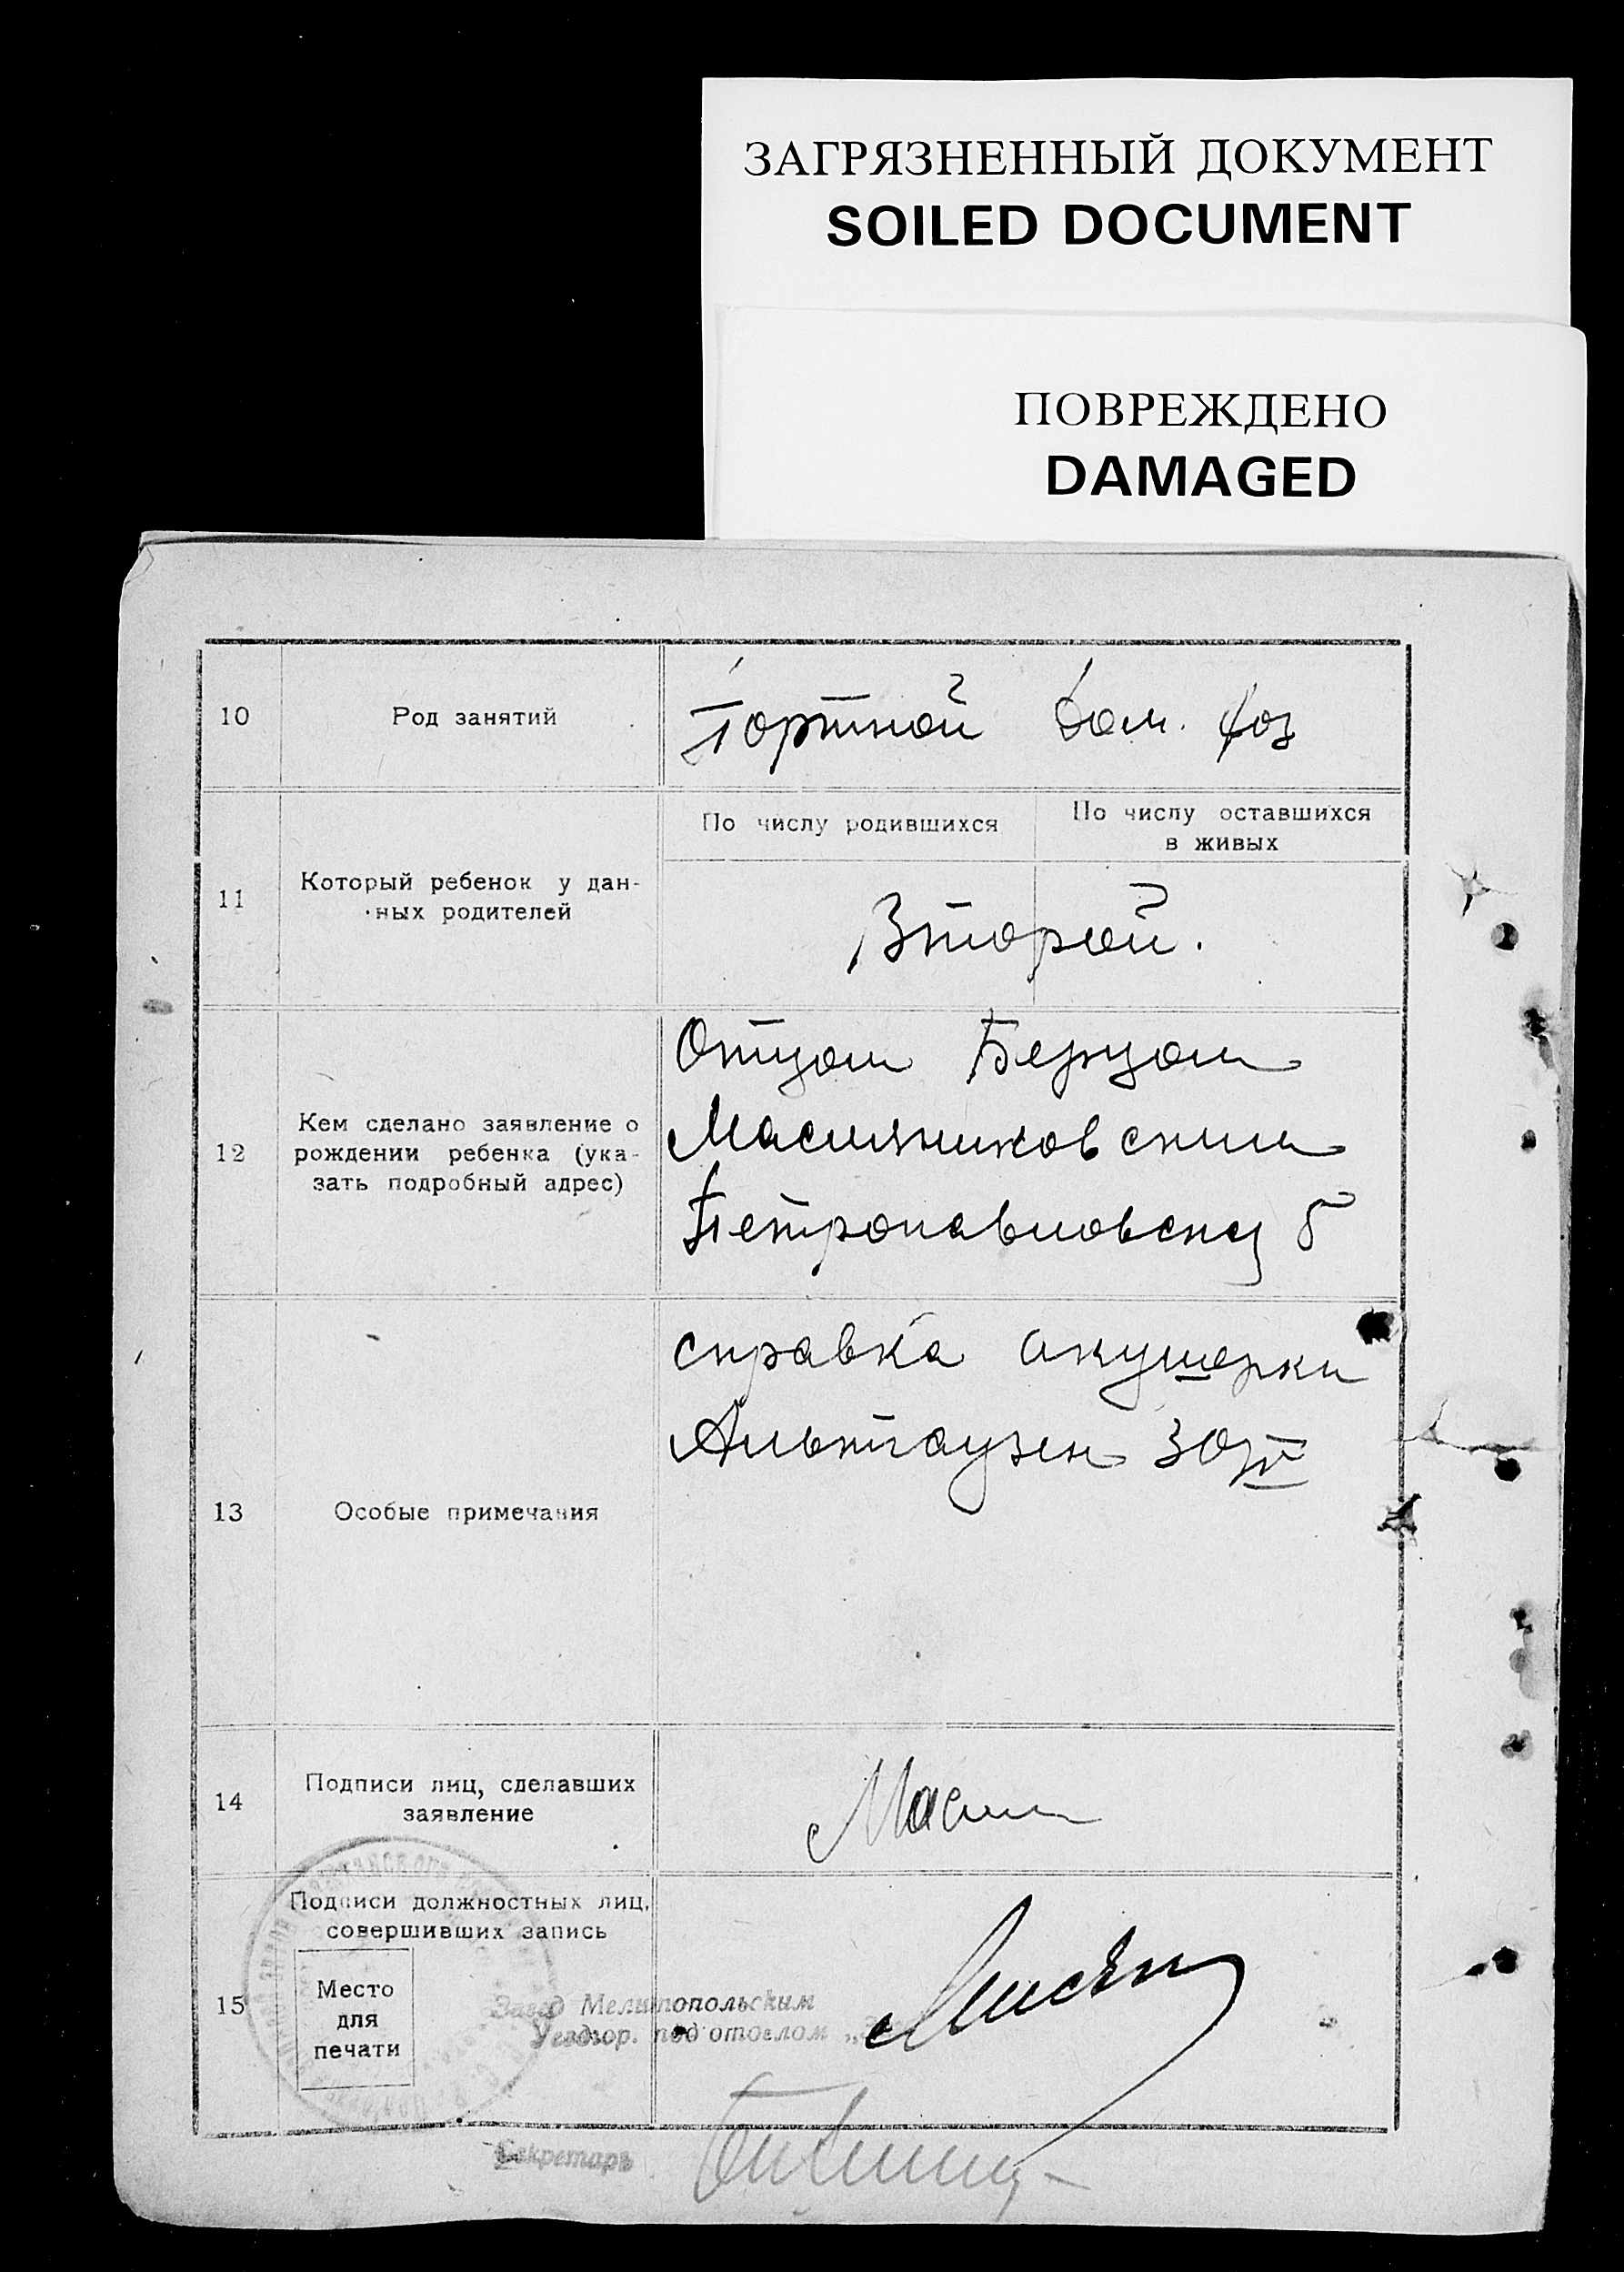 ЗАГРЯЗНЕННЫЙ ДОКУМЕНТ
SOILED DOCUMENT
ПОВРЕЖДЕНО
DAMAGED
10 Род занятий Портной Дом. хоз
11 Который ребенок у дан-
ных родителей
По числу родившихся
По числу оставшихся
в живых
Второй.
12 Кем сделано заявление о
рождении ребенка (ука-
зать подробный адрес)
Отцом
Масляниковским
Петропавловск 5
13 Особые примечания
справка акушерки
Альтгаузен 30/IV
14 Подписи лиц, сделавших
заявление
Масл
15 Подписи должностных лиц,
совершивших запись
Место
для
печати
Завед Мелитопольским
под отделом
Секретарь